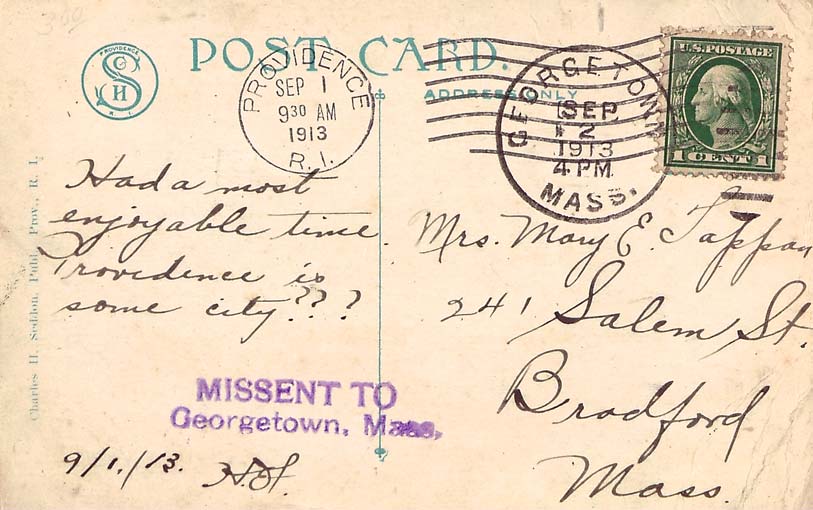 300
POST CARD.
ADDRESS ONLY
PROVIDENCE
SHC
R. I.
PROVIDENCE
SEP 1
9 30 AM
1913
R. I.
GEORGETOWN
SEP
2
1913
4 PM
MASS.
U.S. POSTAGE
1 CENT 1
Charles H. Seddon, Publ. Prov., R. I.
Had a most
enjoyable time.
Providence is
some city???
MISSENT TO
Georgetown, Mass.
9/1/13.
Mrs. Mary E. Tappan
241 Salem St.
Bradford
Mass.